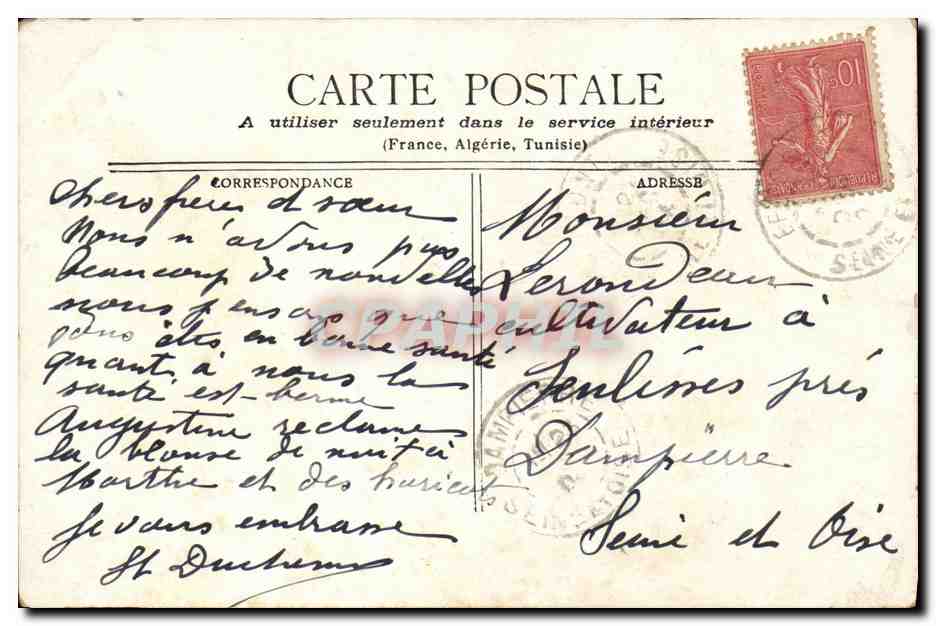 CARTE POSTALE
A utiliser seulement dans le service intérieur
(France, Algérie, Tunisie)
CORRESPONDANCE
chers frere et sœur
Nous n'avons pas
beaucoup de nouvelles
nous pensons que
vous êtes en bonne santé
quant à nous la
santé est bonne
Augustine reclame
la blouse de nuit à
Marthe et des haricots
Je vous embrasse
ADRESSE
Monsieur
Lerondeau
cultivateur à
Senlisses près
Dampierre
Seine et Oise
10c
REPUBLIQUE FRANÇAISE
SEINE-ET-OISE
CPAPHIL